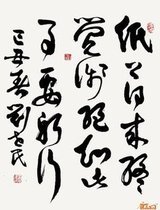 紙上得来终
觉浅绝知此
事要躬行
己丑春劉民